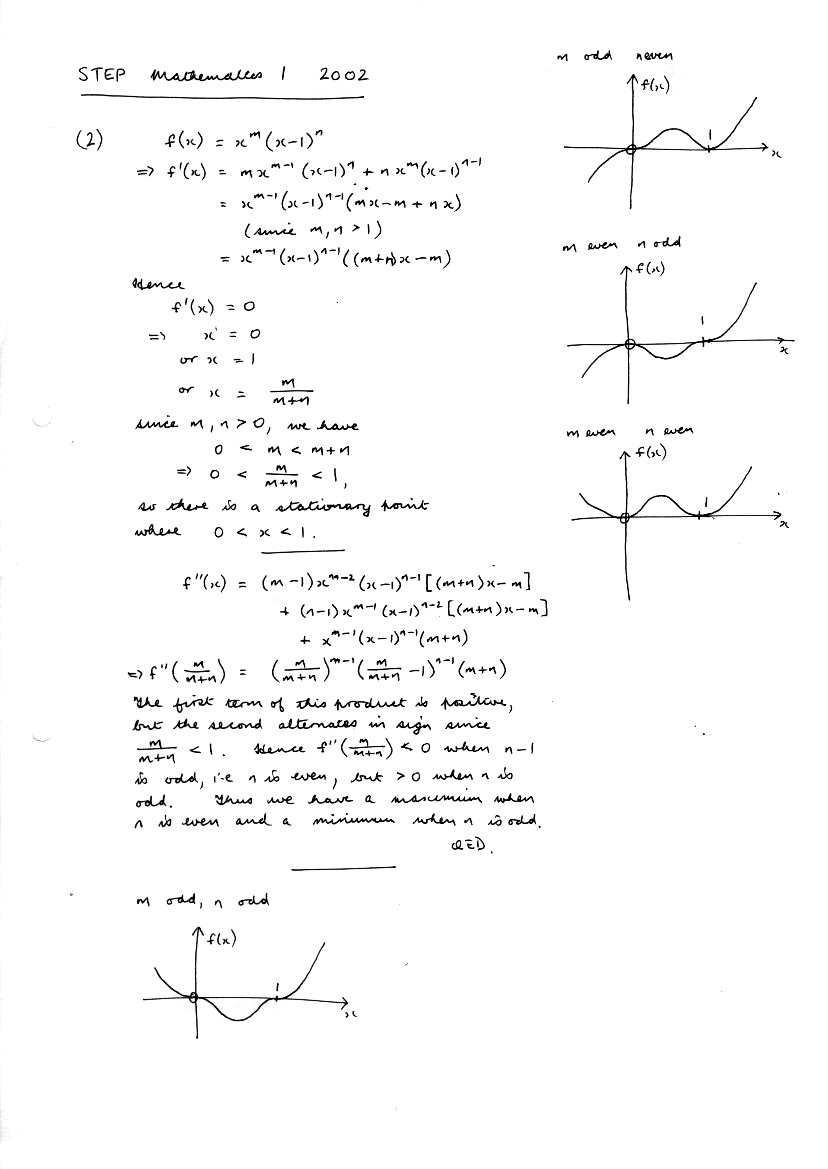 STEP Mathematics 1 2002
(2) f(x) = x^m (x-1)^n
=> f'(x) = m x^{m-1} (x-1)^n + n x^m (x-1)^{n-1}
= x^{m-1} (x-1)^{n-1} (mx - m + nx)
(since m, n > 1)
= x^{m-1} (x-1)^{n-1} ((m+n)x - m)
Hence
f'(x) = 0
=> x = 0
or x = 1
or x = m/(m+n)
since m, n > 0, we have
0 < m < m+n
=> 0 < m/(m+n) < 1,
so there is a stationary point
where 0 < x < 1.
f''(x) = (m-1)x^{m-2} (x-1)^{n-1} [(m+n)x - m]
+ (n-1)x^{m-1} (x-1)^{n-2} [(m+n)x - m]
+ x^{m-1} (x-1)^{n-1} (m+n)
=> f''(m/(m+n)) = (m/(m+n))^{m-1} (m/(m+n) - 1)^{n-1} (m+n)
The first term of this product is positive,
but the second alternates in sign since
m/(m+n) < 1. Hence f''(m/(m+n)) < 0 when n-1
is odd, i.e n is even, but > 0 when n is
odd. Thus we have a maximum when
n is even and a minimum when n is odd.
QED.
m odd, n odd
f(x)
1
x
m odd n even
f(x)
1
x
m even n odd
f(x)
1
x
m even n even
f(x)
1
x